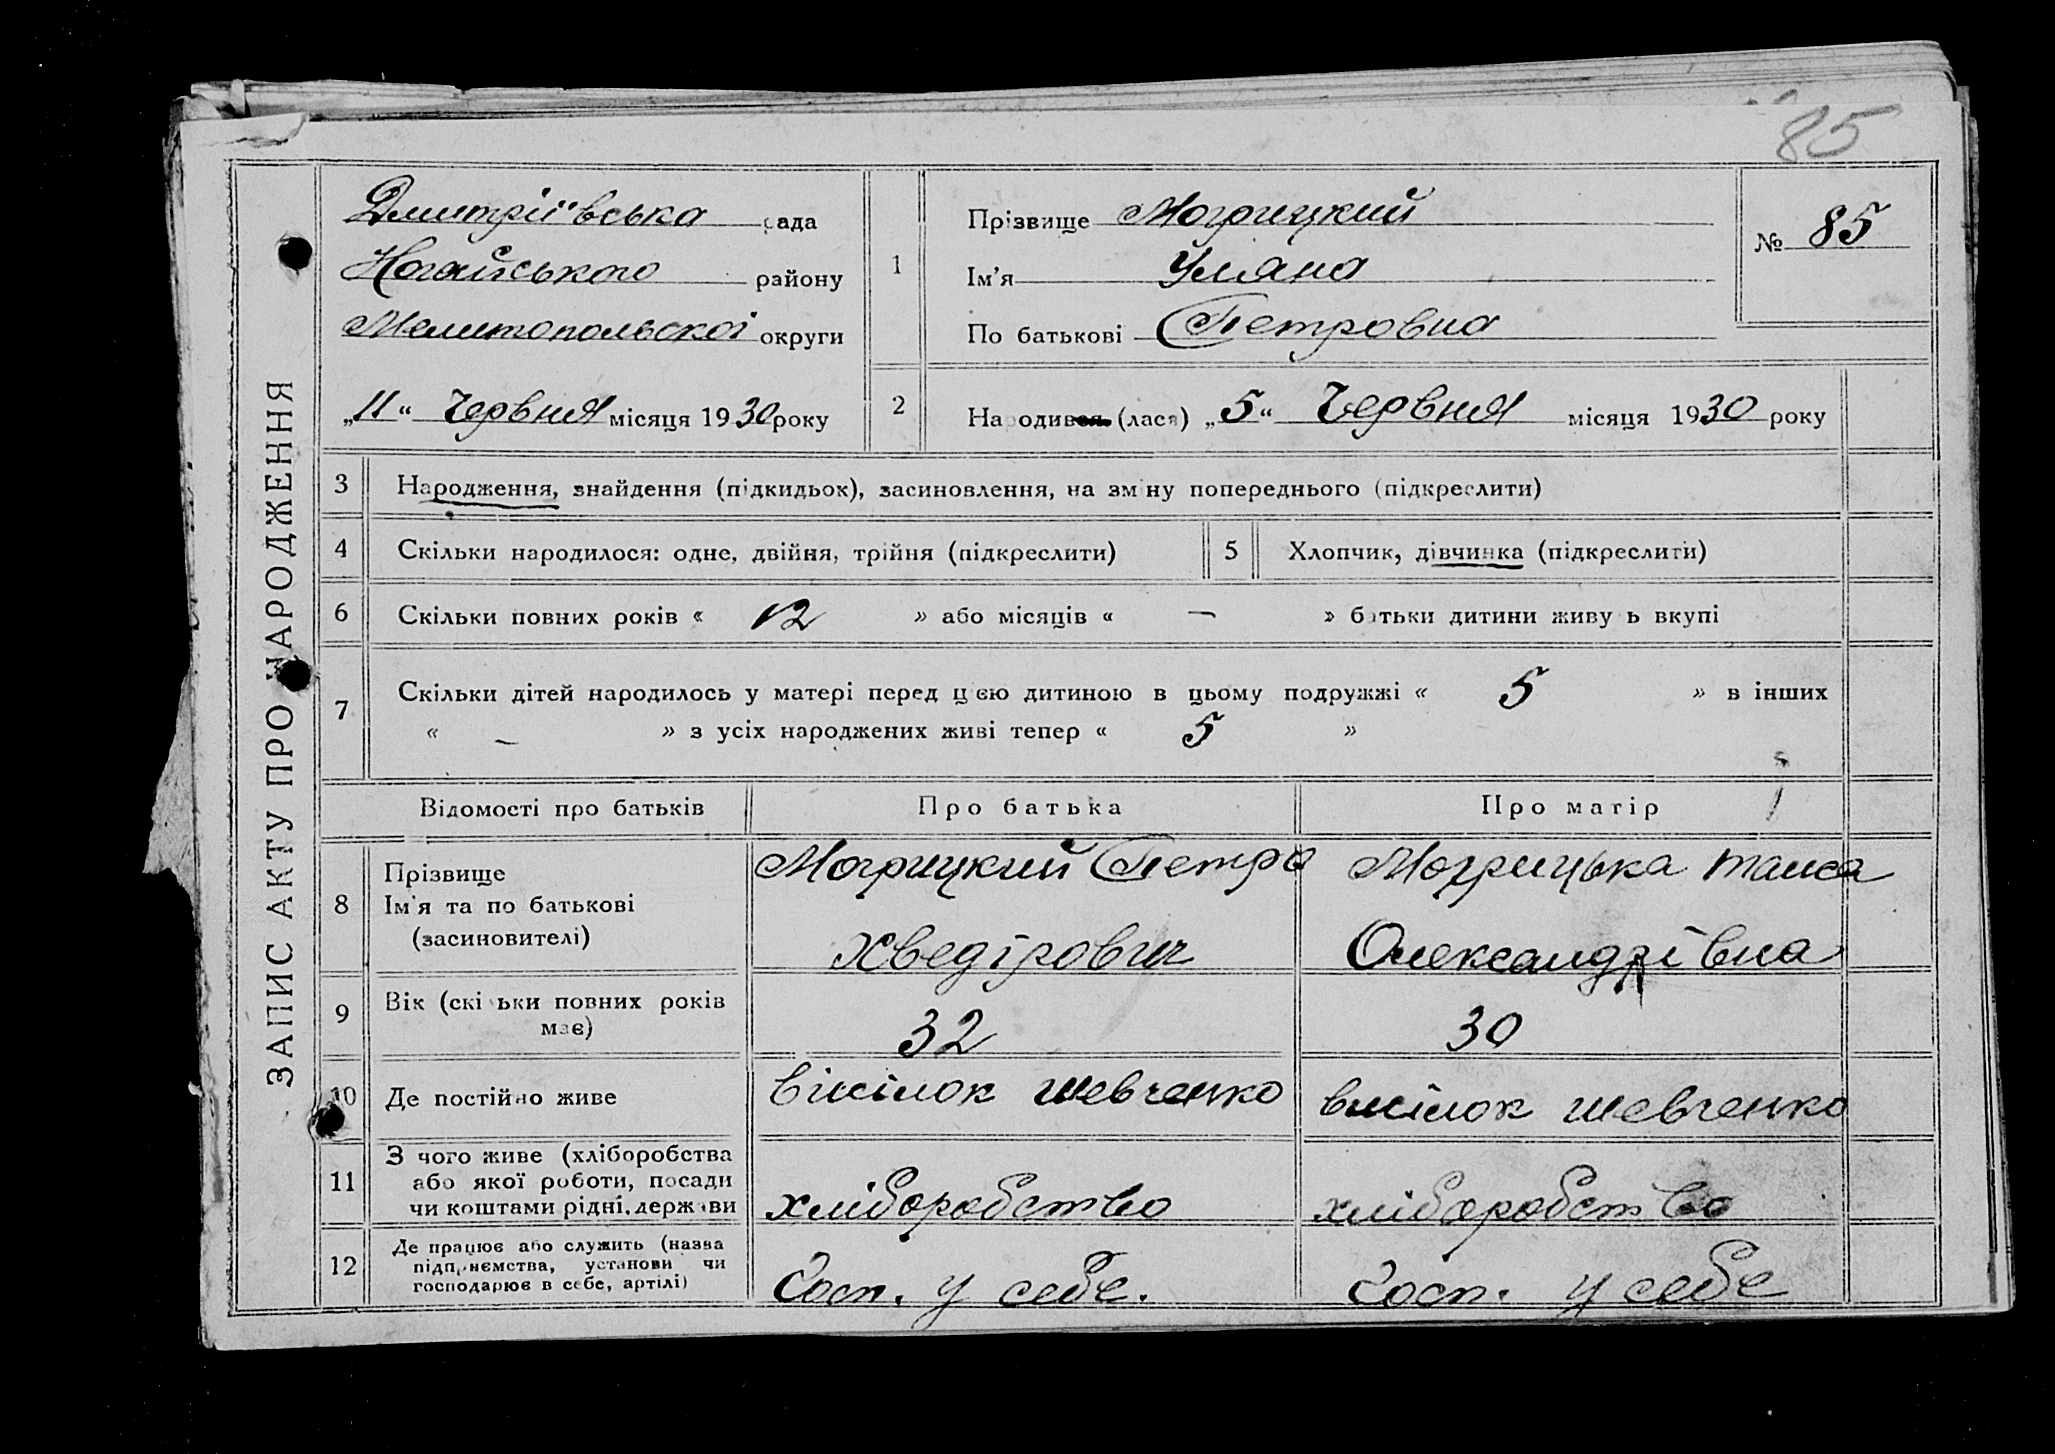 85
ЗАПИС АКТУ ПРО НАРОДЖЕННЯ
Дмитріївська рада
Ногайського району
Мелитопольскої округи
„11“ Червня місяця 1930 року
1
Прізвище Могрицкий
Ім'я Уляна
По батькові Петровна
№ 85
2
Народився (лася) „5“ Червня місяця 1930 року
3 Народження, знайдення (підкидьок), засиновлення, на зміну попереднього (підкреслити)
4 Скільки народилося: одне, двійня, трійня (підкреслити) 5 Хлопчик, дівчинка (підкреслити)
6 Скільки повних років « 12 » або місяців « — » батьки дитини живуть вкупі
7 Скільки дітей народилось у матері перед цією дитиною в цьому подружжі « 5 » в інших
« — » з усіх народжених живі тепер « 5 »
Відомості про батьків Про батька Про матір
8 Прізвище
Ім'я та по батькові
(засиновителі)
Могрицкий Петро
Хведірович
Могрицька Таиса
Олександрівна
9 Вік (скільки повних років
має)
32 30
10 Де постійно живе вісілок Шевченко висілок Шевченко
11 З чого живе (хліборобства
або якої роботи, посади
чи коштами рідні, держави
хліборобство хліборобство
12 Де працює або служить (назва
підприємства, установи чи
господарює в себе, артілі)
Госп. у себе. Госп. у себе